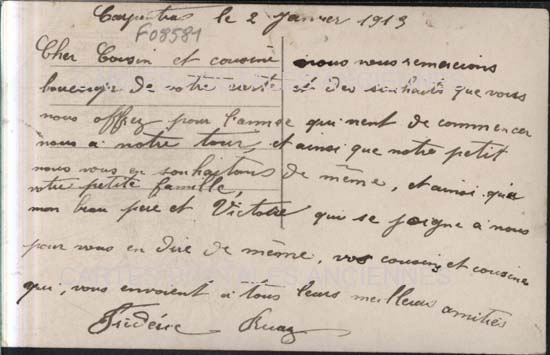 Carpentras le 2 Janvier 1913
F08581
Cher Cousin et cousine nous vous remercions
beaucoup de votre carte et des souhaits que vous
nous offrez pour l'année qui vient de commencer
nous à notre tour, et ainsi que notre petit
nous vous en souhaitons de même, et ainsi qu'a
votre petite famille,
mon beau père et Victoire qui se joigne à nous
pour vous en dire de même, vos cousins et cousine
qui, vous envoient à tous leurs meilleurs amitiés
Frédéric
CARTES POSTALES ANCIENNES